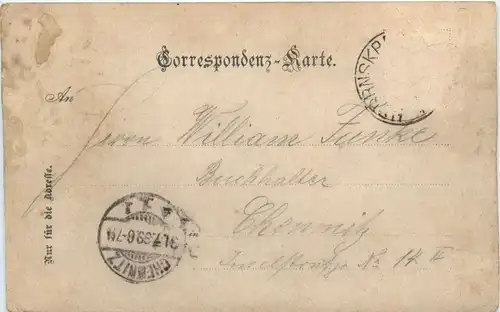 Correspondenz-Karte.
An
Herrn William Funke
Buchhalter
Chemnitz
No 14 II
Nur für die Adresse.
CHEMNITZ
31.7.99.6-7N